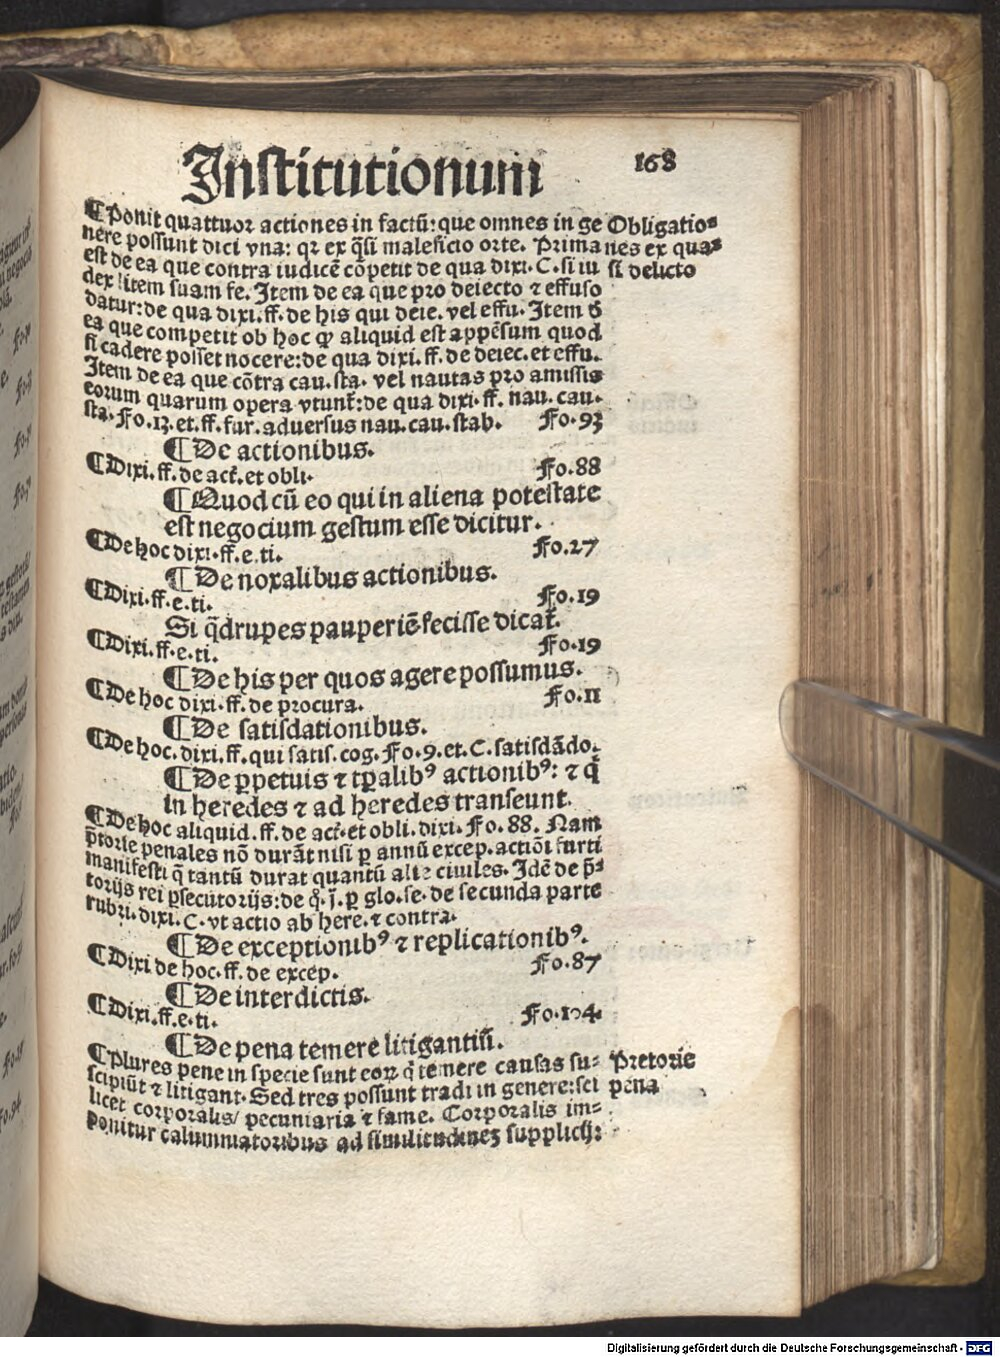 Institutionum 168
¶Ponit quattuor actiones in factū: que omnes in ge
nere possunt dici vna: qꝛ ex q̄si maleficio orte. Prima
est de ea que contra iudicē cōpetit de qua dixi. C. si iu
dex litem suam fe. Item de ea que pro deiecto ⁊ effuso
datur: de qua dixi. ff. de his qui deie. vel effu. Item đ
ea que competit ob hoc ꝙ aliquid est appēsum quod
si cadere posset nocere: de qua dixi. ff. de deiec. et effu.
Item de ea que cōtra cau. sta. vel nautas pro amissis
eorum quarum opera vtunt̄: de qua dixi. ff. nau. cau.
sta. Fo. 13. et. ff. fur. aduersus nau. cau. stab. Fo. 93
Obligatio⸗
nes ex qua⸗
si delicto
¶De actionibus.
¶Dixi. ff. de act̄. et obli. Fo. 88
¶Quod cū eo qui in aliena potestate
est negocium gestum esse dicitur.
¶De hoc dixi. ff. e. ti. Fo. 27
¶De noxalibus actionibus.
¶Dixi. ff. e. ti. Fo. 19
Si q̄drupes pauperiē fecisse dicat̄.
¶Dixi. ff. e. ti. Fo. 19
¶De his per quos agere possumus.
¶De hoc dixi. ff. de procura. Fo. 11
¶De satisdationibus.
¶De hoc. dixi. ff. qui satis. cog. Fo. 9. et. C. satisdādo.
¶De ꝑpetuis ⁊ tꝑalibꝰ actionibꝰ: ⁊ q̄
in heredes ⁊ ad heredes transeunt.
¶De hoc aliquid. ff. de act̄. et obli. dixi. Fo. 88. Nam
p̄torie penales nō durāt nisi ꝑ annū excep. actiōi furti
manifesti q̄ tantū durat quantū alie ciuiles. Idē de p̄⸗
torijs rei ꝑsecutorijs: de q̄. j. ꝑ glo. se. de secunda parte
rubri. dixi. C. vt actio ab here. ⁊ contra.
¶De exceptionibꝰ ⁊ replicationibꝰ.
¶Dixi de hoc. ff. de excep. Fo. 87
¶De interdictis.
¶Dixi. ff. e. ti. Fo. 104.
¶De pena temere litigantiū.
¶Plures pene in specie sunt eoꝝ q̄ temere causas su⸗
scipiūt ⁊ litigant. Sed tres possunt tradi in genere: sci
licet corporalis/ pecuniaria ⁊ fame. Corporalis im⸗
ponitur calumniatoribus ad similitudineꝫ supplicij:
Pretorie
pena
Digitalisierung gefördert durch die Deutsche Forschungsgemeinschaft - DFG